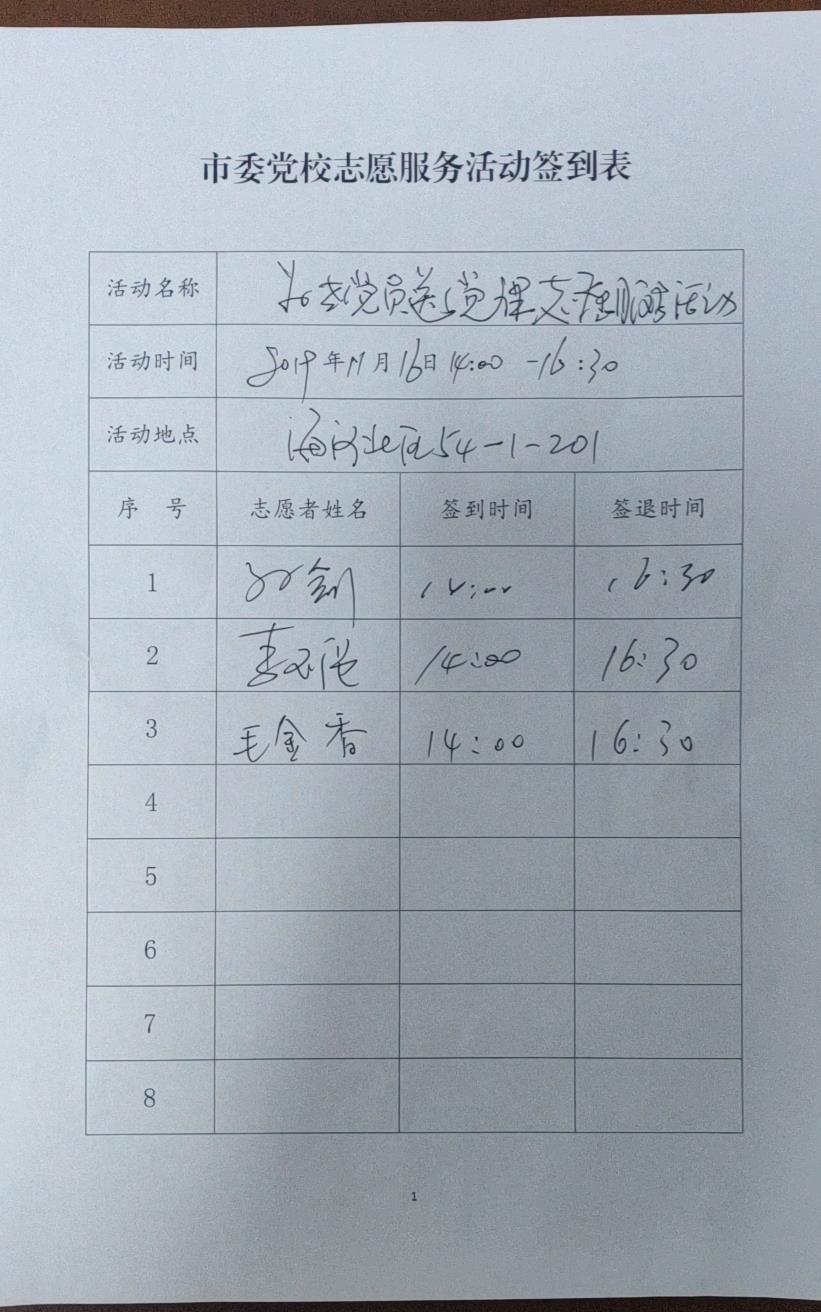 市委党校志愿服务活动签到表
活动名称 为老党员送党课志愿服务活动
活动时间 2019年11月16日14:00-16:30
活动地点 海河北区54-1-201
序 号 志愿者姓名 签到时间 签退时间
1 剑 14:00 16:30
2 李 14:00 16:30
3 毛金香 14:00 16:30
4
5
6
7
8
1